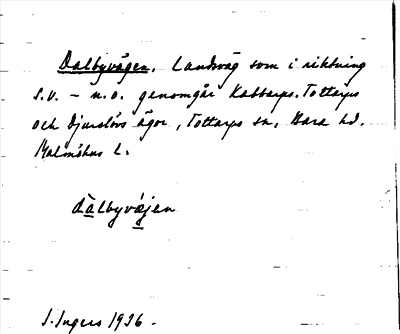 Dalbyvägen. Landsväg som i riktning
S.V. – n.o. genomgår Kabbarps, Tottarps
och Djurslövs ägor, Tottarps sn, Bara hd.
Malmöhus L.
dàlbyvä́jen
I. Ingers 1936.